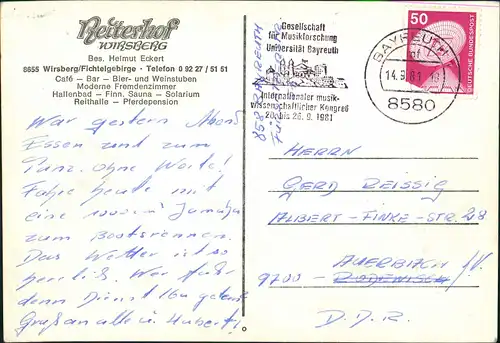 Reiterhof
WIRSBERG
Bes. Helmut Eckert
8655 Wirsberg/Fichtelgebirge - Telefon 0 92 27 / 51 51
Café - Bar - Bier- und Weinstuben
Moderne Fremdenzimmer
Hallenbad - Finn. Sauna - Solarium
Reithalle - Pferdepension
War gestern Abend
Essen und zum
Tanz. Ohne Worte!
Fahre heute mit
eine 1000er Yamaha
zum Bootsrennen.
Das Wetter ist so
herrlich. Wer
denn Dienst
Gruß an alle u. Hubert!
Gesellschaft
für Musikforschung
Universität Bayreuth
Internationaler musik-
wissenschaftlicher Kongreß
20. bis 26. 9. 1981
858 BAYREUTH
50
DEUTSCHE BUNDESPOST
BAYREUTH
14.9.81
8580
HERRN
GERD REISSIG
ALBERT-FINKE-STR. 28
AUERBACH /V.
9700 - RODEWISCH
D.D.R.